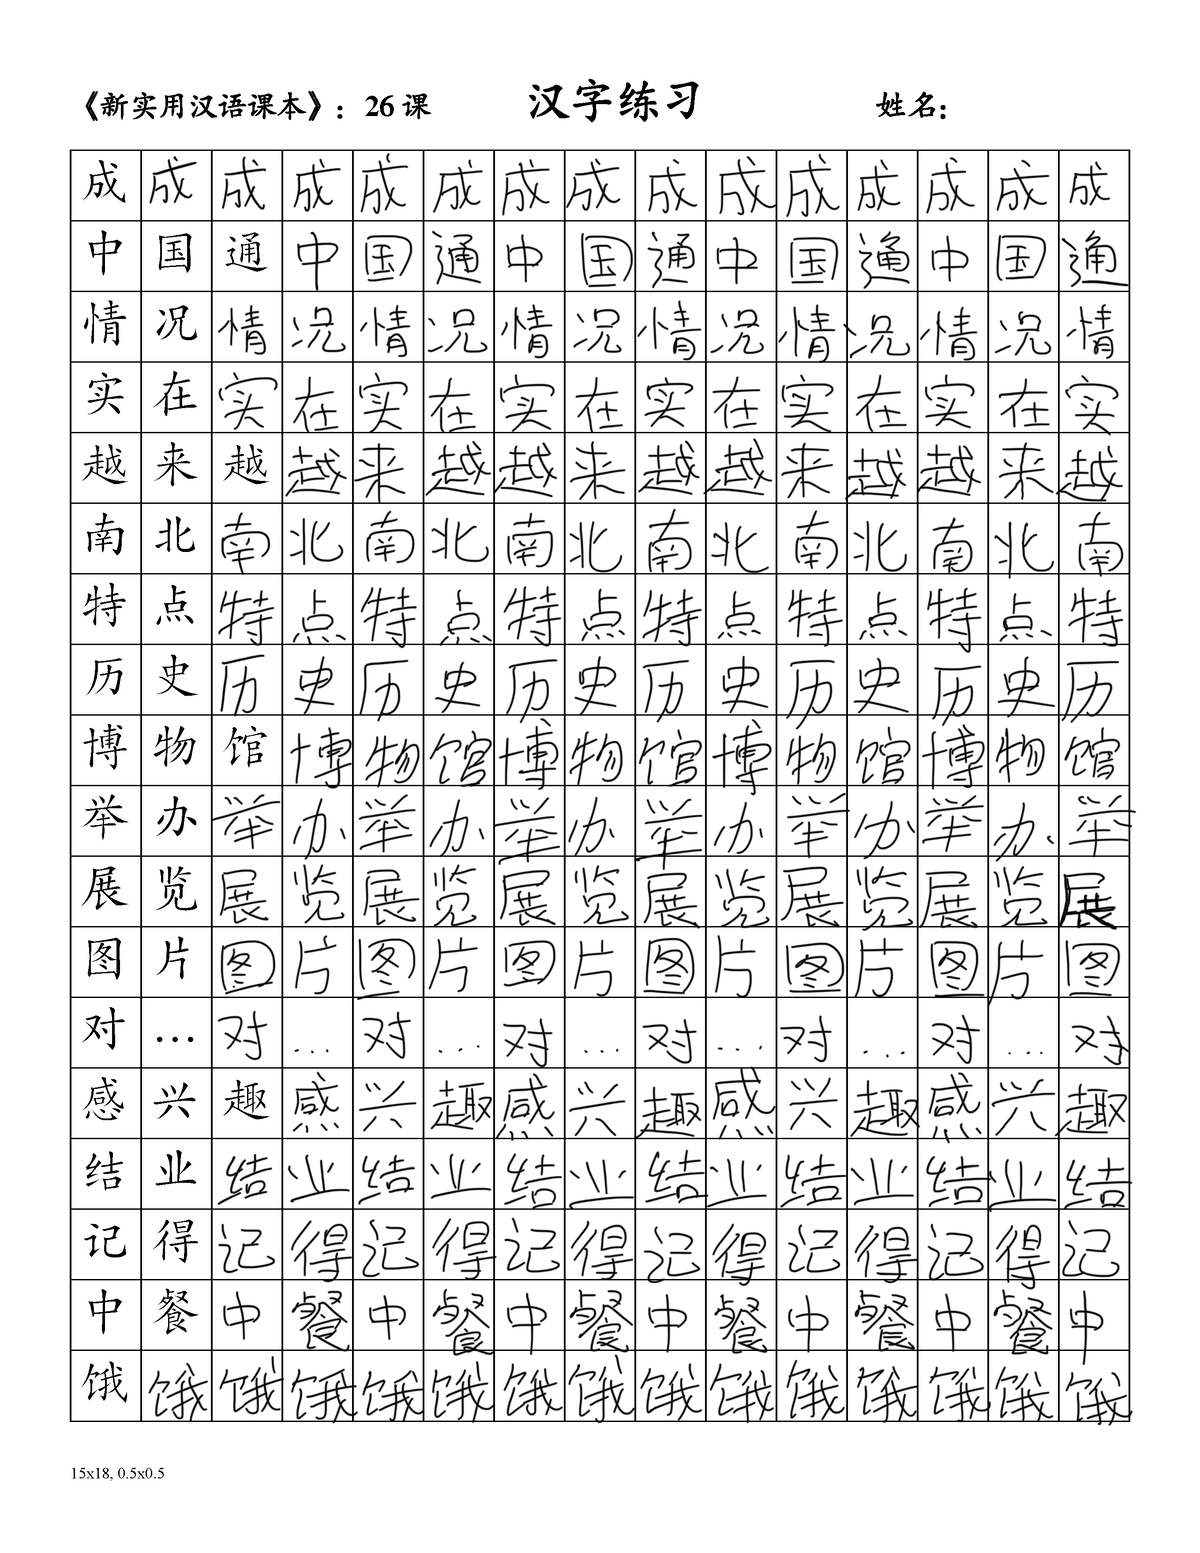 《新实用汉语课本》：26 课 汉字练习 姓名：
成 成 成 成 成 成 成 成 成 成 成 成 成 成 成
中 国 通 中 国 通 中 国 通 中 国 通 中 国 通
情 况 情 况 情 况 情 况 情 况 情 况 情 况 情
实 在 实 在 实 在 实 在 实 在 实 在 实 在 实
越 来 越 越 来 越 越 来 越 越 来 越 越 来 越
南 北 南 北 南 北 南 北 南 北 南 北 南 北 南
特 点 特 点 特 点 特 点 特 点 特 点 特 点 特
历 史 历 史 历 史 历 史 历 史 历 史 历 史 历
博 物 馆 博 物 馆 博 物 馆 博 物 馆 博 物 馆
举 办 举 办 举 办 举 办 举 办 举 办 举 办 举
展 览 展 览 展 览 展 览 展 览 展 览 展 览 展
图 片 图 片 图 片 图 片 图 片 图 片 图 片 图
对 … 对 … 对 … 对 … 对 … 对 … 对 … 对
感 兴 趣 感 兴 趣 感 兴 趣 感 兴 趣 感 兴 趣
结 业 结 业 结 业 结 业 结 业 结 业 结 业 结
记 得 记 得 记 得 记 得 记 得 记 得 记 得 记
中 餐 中 餐 中 餐 中 餐 中 餐 中 餐 中 餐 中
饿 饿 饿 饿 饿 饿 饿 饿 饿 饿 饿 饿 饿 饿 饿
15x18, 0.5x0.5